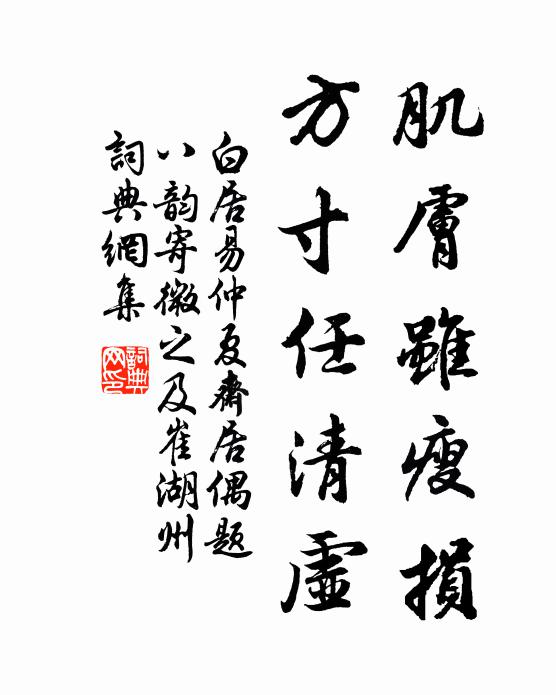 肌膚雖瘦損
方寸任清虛
白居易仲夏齋居偶題
八韵寄微之及崔湖州
詞典網集
詞典
网印